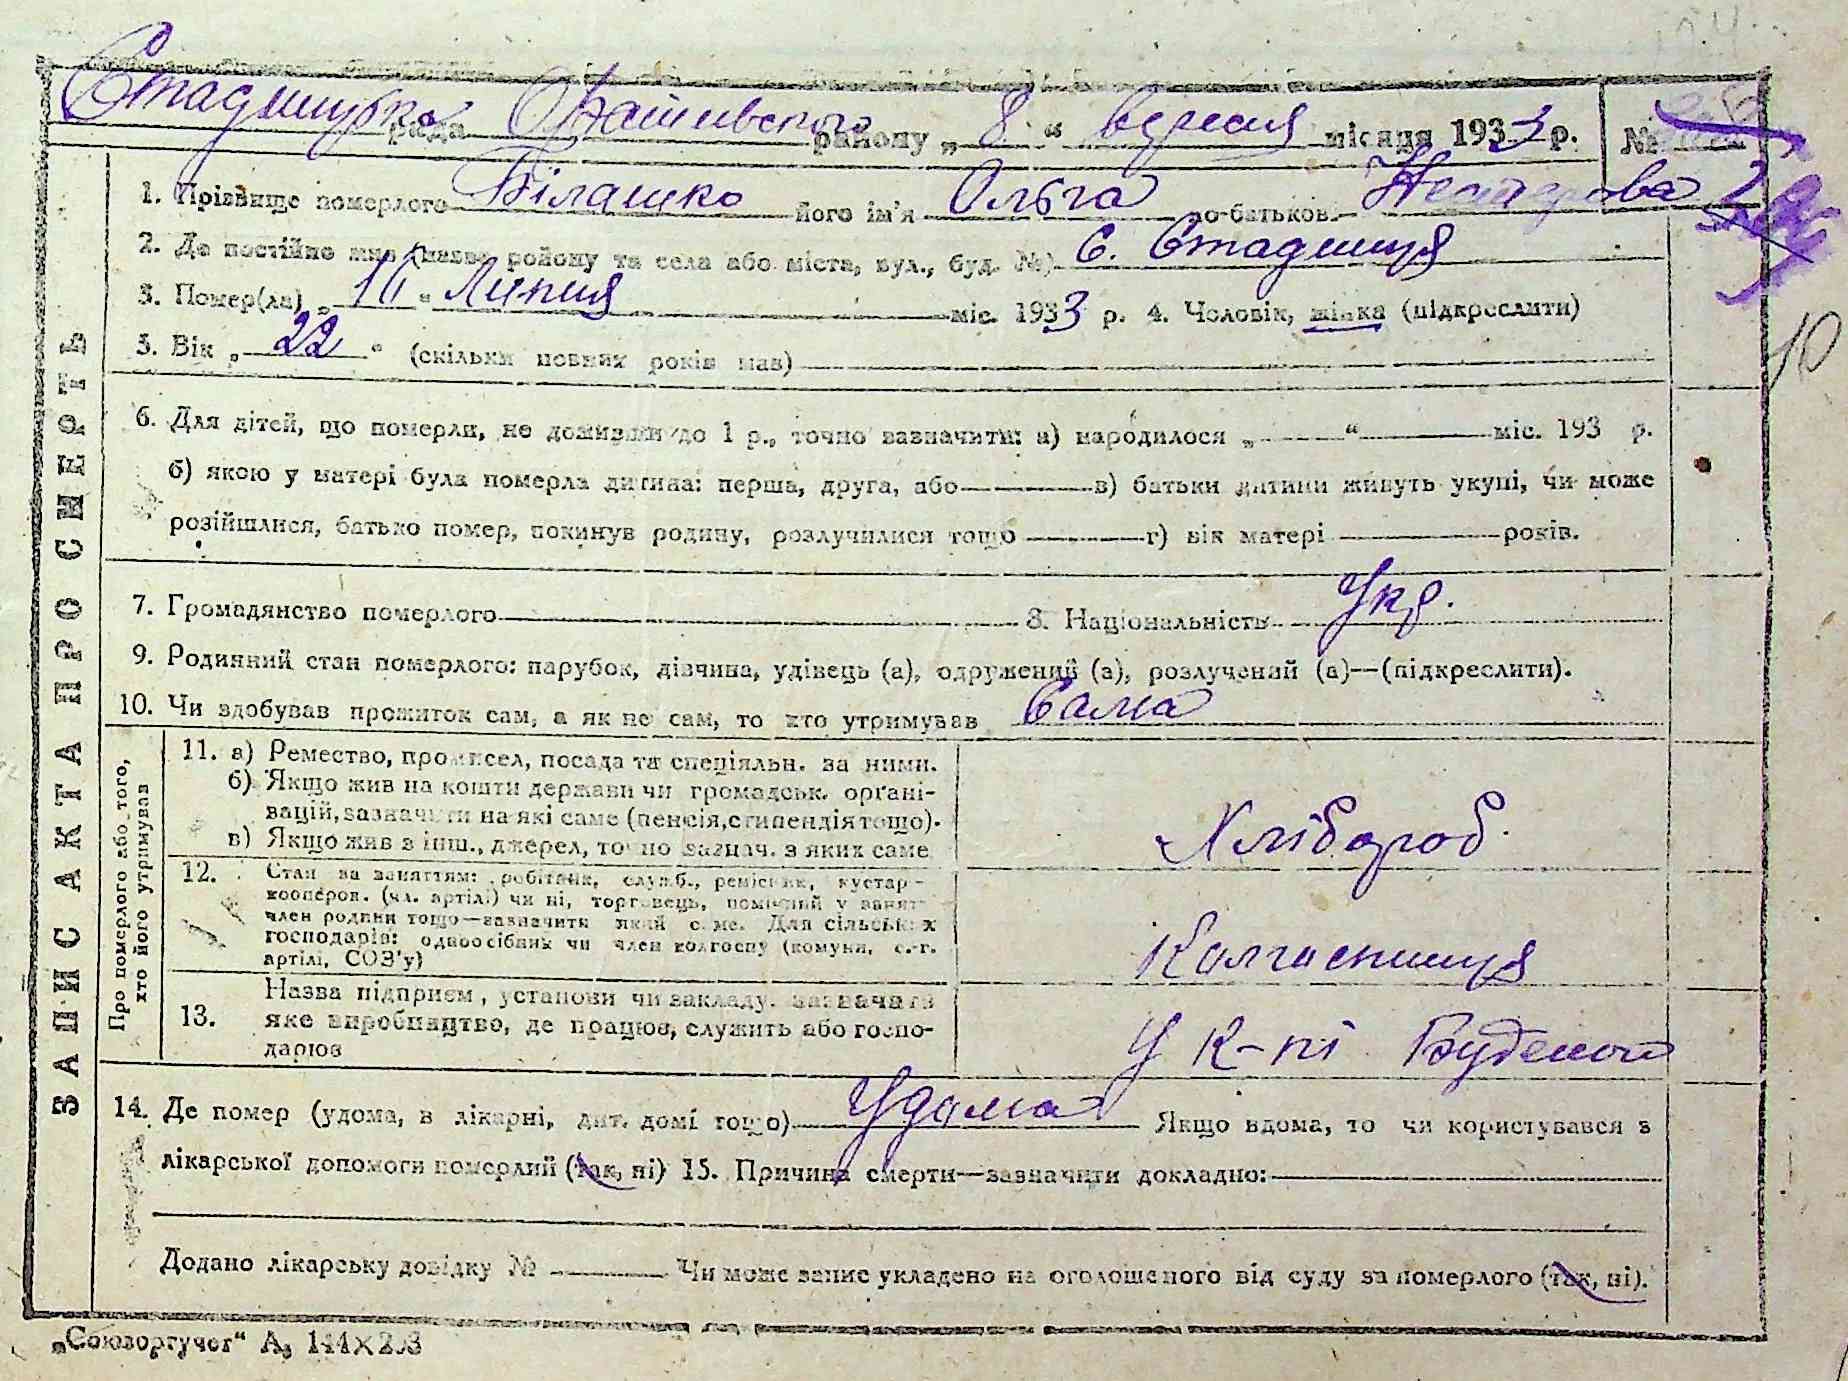 Стадницька рада Оратівського району „ 8 “ вересня місяця 1933 р. №
1. Прізвище померлого Білашко його ім'я Ольга по-батькові Несторова
2. Де постійно жив (назва району та села або міста, вул., буд. №) С. Стадниця
3. Помер(ла) „ 16 “ Липня міс. 1933 р. 4. Чоловік, жінка (підкреслити)
5. Вік „ 22 “ (скільки повних років мав)
6. Для дітей, що померли, не доживши до 1 р., точно зазначити: а) народилося „ “ міс. 193 р.
б) якою у матері була померла дитина: перша, друга, або в) батьки дитини живуть укупі, чи може
розійшлися, батько помер, покинув родину, розлучилися тощо г) вік матері років.
7. Громадянство померлого 8. Національність Укр.
9. Родинний стан померлого: парубок, дівчина, удівець (а), одружений (а), розлучений (а)—(підкреслити).
10. Чи здобував прожиток сам, а як не сам, то хто утримував Сама
ЗАПИС АКТА ПРО СМЕРТЬ
Про померлого або того,
хто його утримував
11. а) Ремество, промисел, посада та спеціяльн. за ними.
б) Якщо жив на кошти держави чи громадськ. орґані-
зацій, зазначити на які саме (пенсія, стипендія тощо).
в) Якщо жив з інш., джерел, точно зазнач. з яких саме
Хлібороб
12. Стан за заняттям: робітник, служб., ремісник, кустар-
кооперов. (чл. артілі) чи ні, торговець, помічний у занят
член родини тощо—зазначити який саме. Для сільських
господарів: одноосібник чи член колгоспу (комуни, с.-г.
артілі, СОЗ'у)
Колгоспниця
13. Назва підприєм., установи чи закладу. зазначити
яке виробництво, де працює, служить або госпо-
дарює
У к-пі Буденого
14. Де помер (удома, в лікарні, дит. домі тощо) Удома Якщо вдома, то чи користувався з
лікарської допомоги померлий (так, ні) 15. Причина смерти—зазначити докладно:
Додано лікарську довідку № Чи може запис укладено на оголошеного від суду за померлого (так, ні).
„Союзоргучет“
10